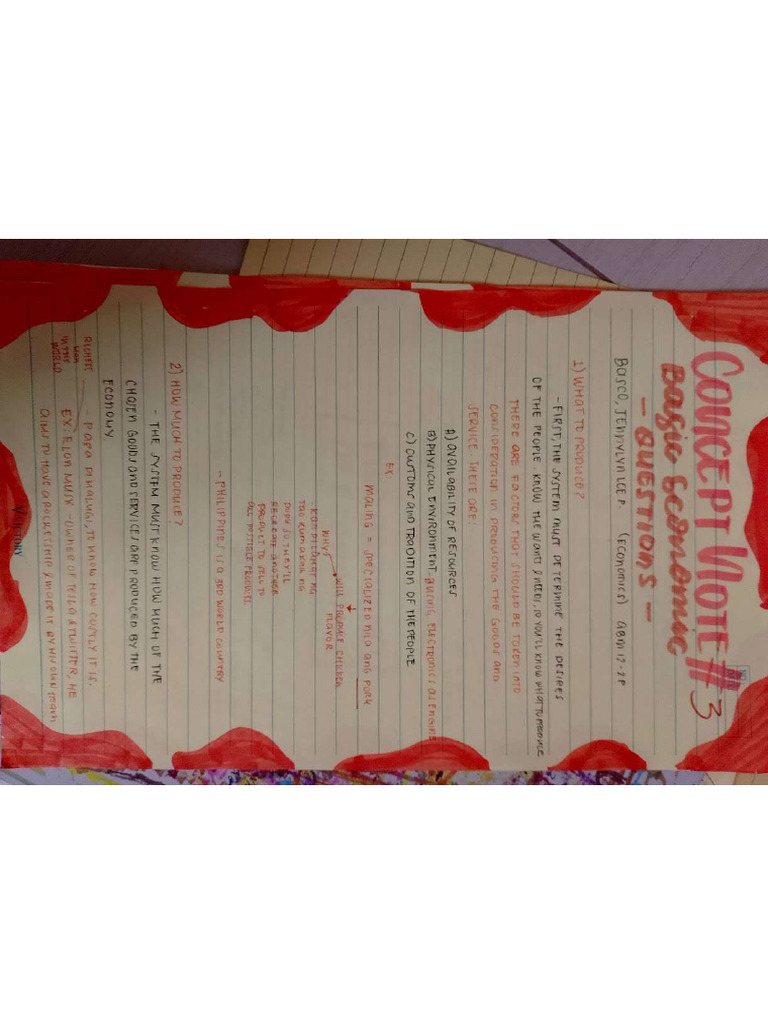 CONCEPT NOTE #3
Basic Economic
- QUESTIONS -
BASCO, JENNYLYN LEE P. (ECONOMICS) ABM 12-2P
1) WHAT TO PRODUCE?
- FIRST, THE SYSTEM MUST DETERMINE THE DESIRES
OF THE PEOPLE. KNOW THE WANTS & NEED, SO YOU'LL KNOW WHAT TO PRODUCE
THERE ARE FACTORS THAT SHOULD BE TAKEN INTO
CONSIDERATION IN PRODUCING THE GOODS AND
SERVICE. THESE ARE:
A) AVAILABILITY OF RESOURCES
B) PHYSICAL ENVIRONMENT, ELECTRONICS AS ENGINE
C) CUSTOMS AND TRADITION OF THE PEOPLE
EX:
MALING = SPECIALIZED NILA ANG PORK
WILL PRODUCE CHICKEN
WHY? FLAVOR
PRODUCT TO SELL TO
ALL POSSIBLE PRODUCE
- PHILIPPINES IS A 3RD WORLD COUNTRY
2) HOW MUCH TO PRODUCE?
- THE SYSTEM MUST KNOW HOW MUCH OF THE
CHOSEN GOODS AND SERVICES ARE PRODUCED BY THE
ECONOMY
RICHEST - PARA DI MALUGI, TO KNOW HOW COSTLY IT IS.
MAN
IN THE
WORLD
EX: ELON MUSK - OWNER OF TESLA & TWITTER, HE
AIMS TO HAVE A ROCKETSHIP & MADE IT BY HIS OWN TEAM
VICTORY